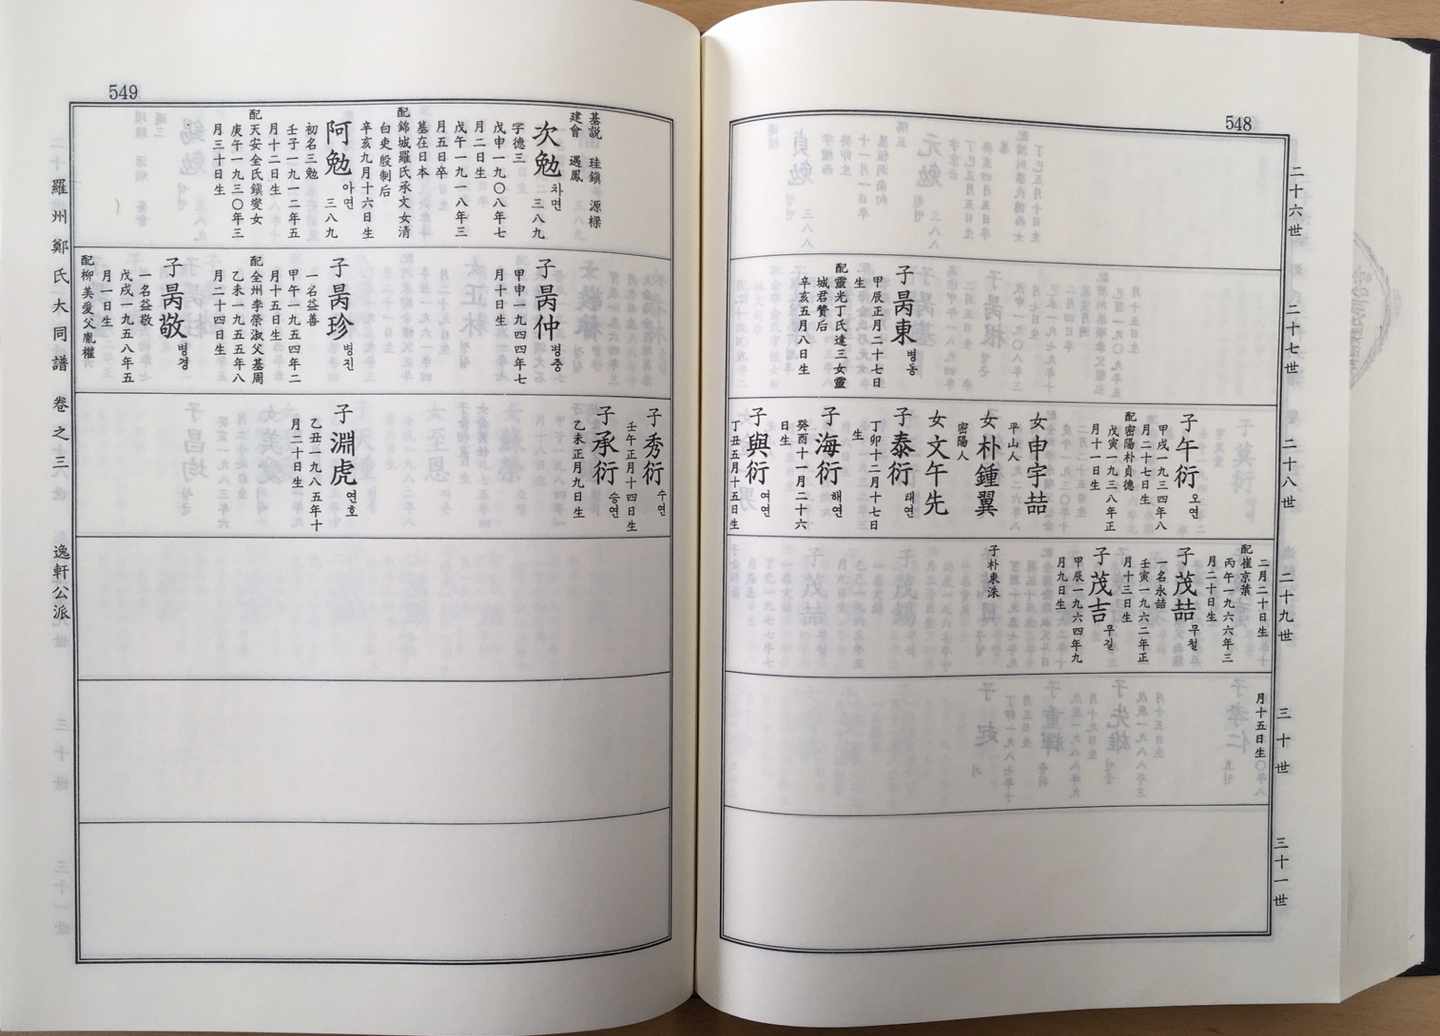 548
二十六世
二十七世
子昺東 병동
甲辰正月二十七日
生
配靈光丁氏達三女靈
城君贊后
辛亥五月八日生
二十八世
子午衍 오연
甲戌一九三四年八
月二十七日生
配密陽朴貞德
戊寅一九三八年正
月十一日生
女申宇喆
平山人
女朴鍾翼
密陽人
女文午先
子泰衍 태연
丁卯十二月十七日
生
子海衍 해연
癸酉十一月二十六
日生
子與衍 여연
丁丑五月十五日生
二十九世
二月二十日生
配崔京葉
丙午一九六六年三
月二十日生
子茂喆 무철
一名永喆
壬寅一九六二年正
月十三日生
子茂吉 무길
甲辰一九六四年九
月九日生
子朴東洙
三十世
月十五日生
三十一世
549
墓説 珪鎭 源樑
建會 遇鳳
次勉 차면 三八九
字德三
戊申一九〇八年七
月二日生
戊午一九一八年三
月五日卒
墓在日本
配錦城羅氏承文女清
白吏殷制后
辛亥九月十六日生
阿勉 아면 三八九
初名三勉
壬子一九一二年五
月十二日生
配天安全氏鎭燮女
庚午一九三〇年三
月三十日生
子昺仲 병중
甲申一九四四年七
月十日生
子昺珍 병진
一名益善
甲午一九五四年二
月十五日生
配全州李榮淑父基周
乙未一九五五年八
月二十四日生
子昺敬 병경
一名益敬
戊戌一九五八年五
月一日生
配柳美愛父胤權
子秀衍 수연
壬午正月十四日生
子承衍 승연
乙未正月九日生
子淵虎 연호
乙丑一九八五年十
月二十日生
羅州鄭氏大同譜 卷之三 逸軒公派